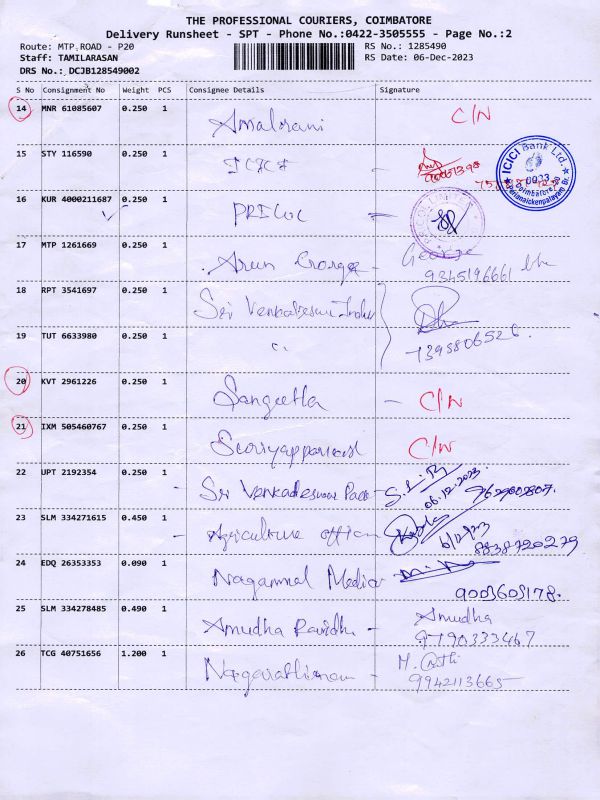 THE PROFESSIONAL COURIERS, COIMBATORE
Delivery Runsheet - SPT - Phone No.:0422-3505555 - Page No.:2
Route: MTP ROAD - P20
RS No.: 1285490
Staff: TAMILARASAN
RS Date: 06-Dec-2023
DRS No.: DCJB128549002
S No Consignment No Weight PCS Consignee Details Signature
14 MNR 61085607 0.250 1 C/N
Amalrani
15 STY 116590 0.250 1
ICICI
ICICI Bank Ltd.
16 KUR 4000211687 0.250 1
PRICOL
17 MTP 1261669 0.250 1
Arun George - George
9345196661
18 RPT 3541697 0.250 1
Sri Venkateswara
19 TUT 6633980 0.250 1
7395806526
20 KVT 2961226 0.250 1
Sangeetha - C/N
21 IXM 505460767 0.250 1
C/N
22 UPT 2192354 0.250 1
Sri Venkadeswara
06.12.2023
23 SLM 334271615 0.450 1
- Agriculture office
6/12/23
8838720279
24 EDQ 26353353 0.090 1
Nagammal
9003603178.
25 SLM 334278485 0.490 1 Amudha
Amudha -
9790333467
26 TCG 40751656 1.200 1
9942113665